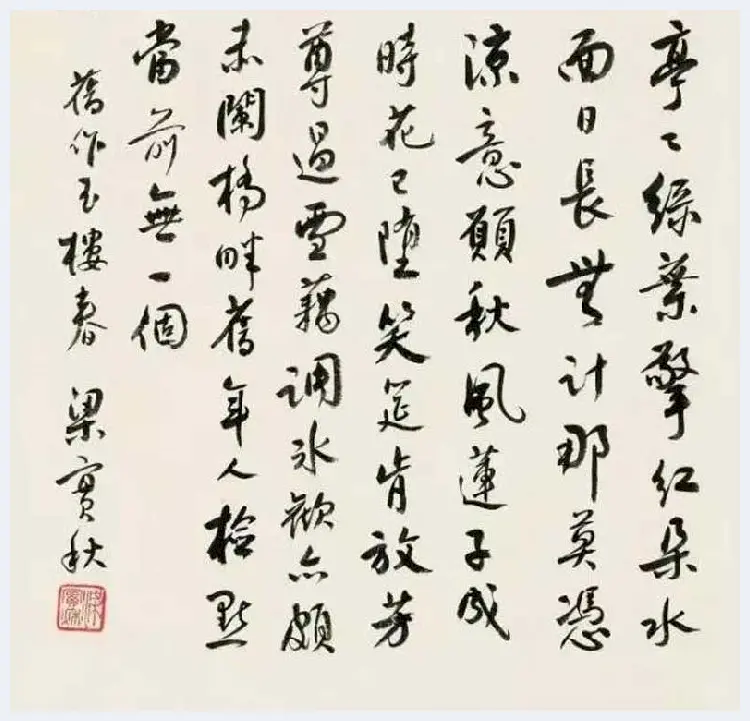 亭々綠葉擎紅朵水
面日長無計那莫憑
涼意願秋風蓮子成
時花已墮笑筵肯放芳
尊過雪藕調冰歡亦頗
未闌橋畔舊年人檢點
當前無一個
舊作玉樓春 梁實秋